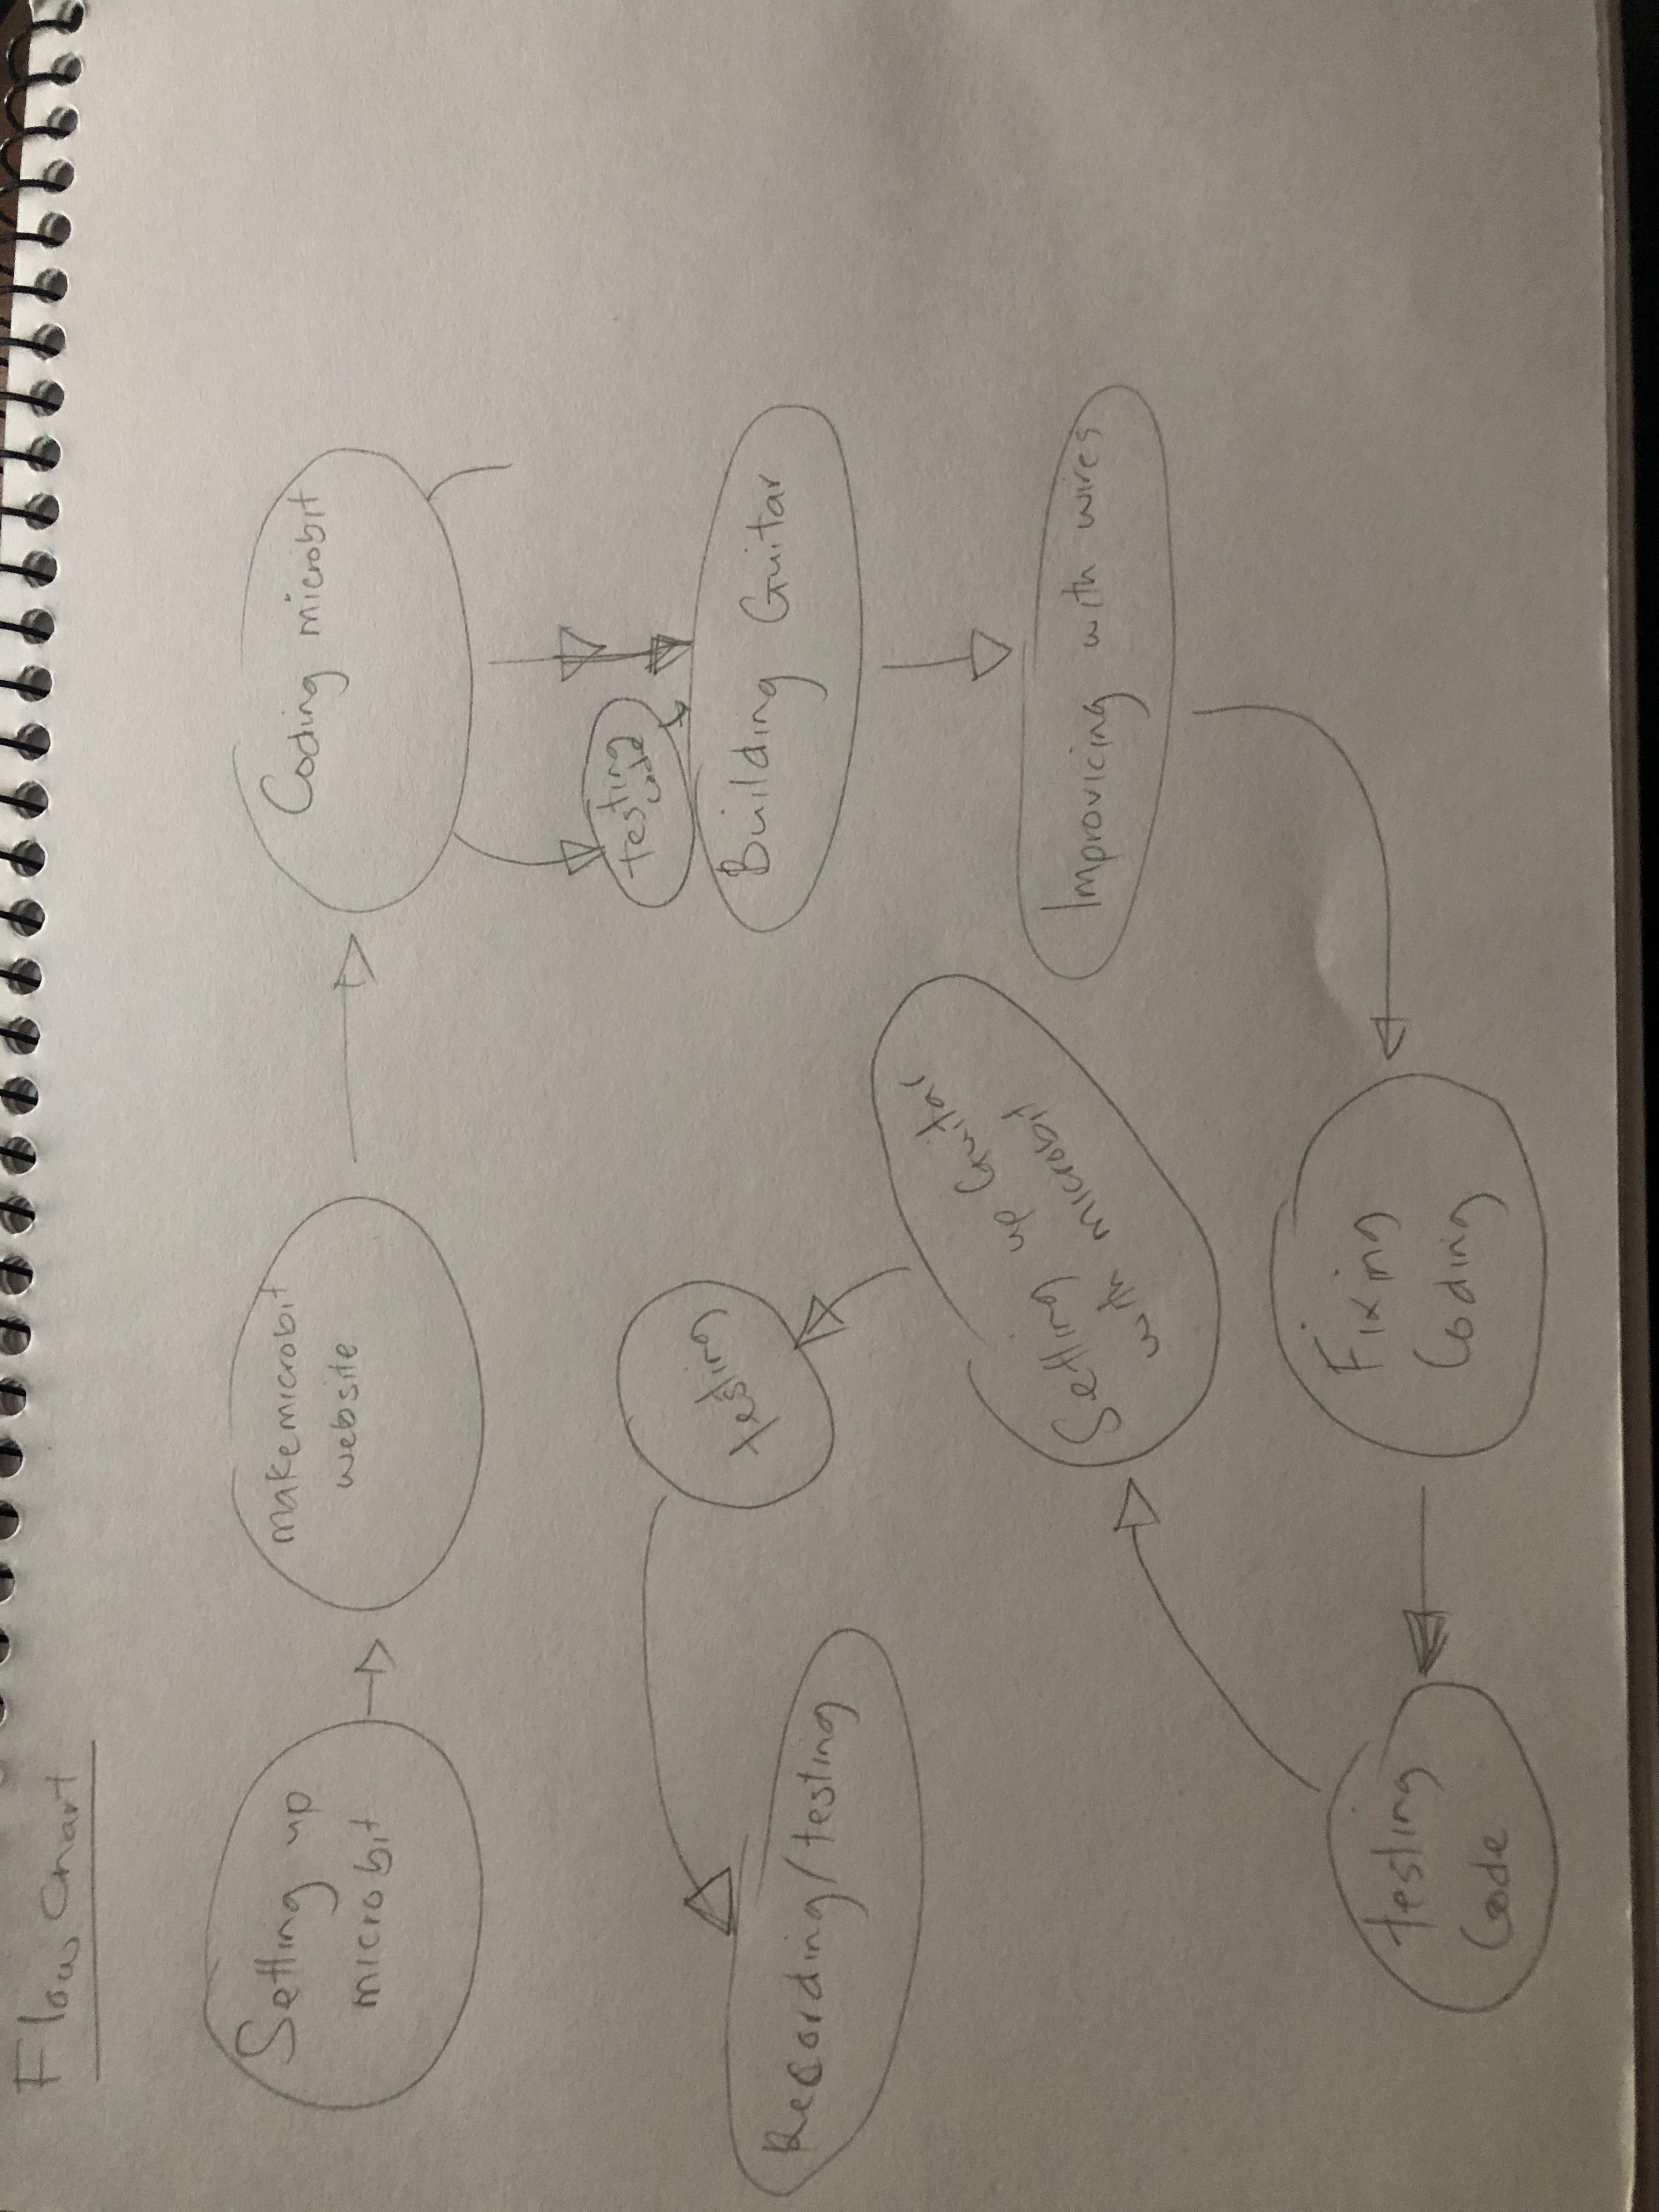 Flow Chart
Setting up
microbit
makemicrobit
website
Coding microbit
testing
code
Building Guitar
Improvicing with wires
Fixing
Coding
Testing
Code
Setting up Guitar
with microbit
testing
Recording/testing